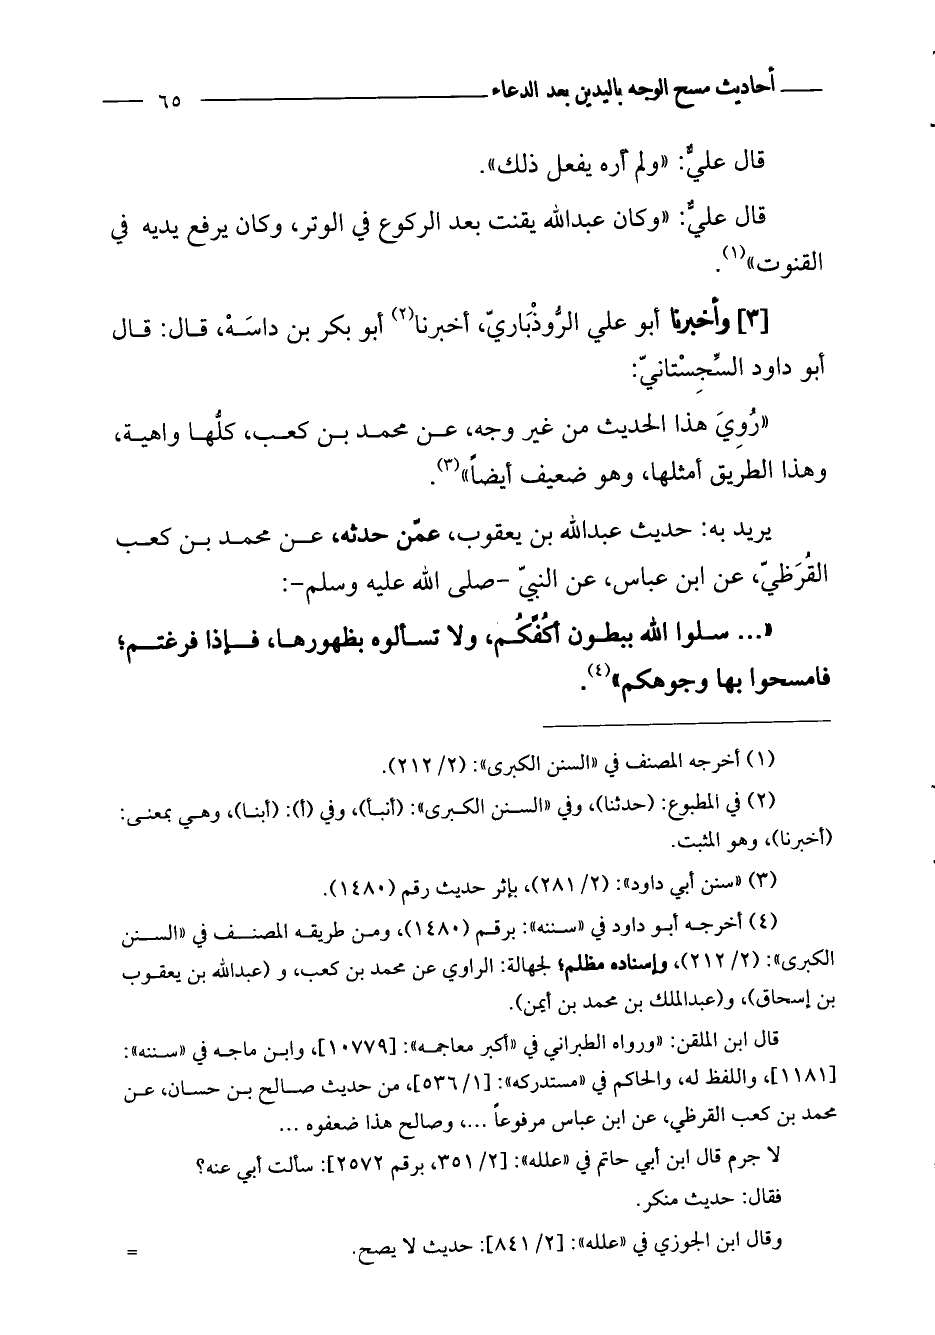 أحاديث مسح الوجه باليدين بعد الدعاء ٦٥
قال عليٌّ: «ولم أره يفعل ذلك».
قال عليٌّ: «وكان عبدالله يقنت بعد الركوع في الوتر، وكان يرفع يديه في
القنوت»(١).
[٣] وأخبرنا أبو علي الرُّوذْبَاريّ، أخبرنا(٢) أبو بكر بن داسَهْ، قال: قال
أبو داود السِّجِسْتانيّ:
«رُوِيَ هذا الحديث من غير وجه، عن محمد بن كعب، كلُّها واهية،
وهذا الطريق أمثلها، وهو ضعيف أيضاً»(٣).
يريد به: حديث عبدالله بن يعقوب، عمّن حدثه، عن محمد بن كعب
القُرَظيّ، عن ابن عباس، عن النبيّ -صلى الله عليه وسلم-:
«... سلوا الله ببطون أكُفِّكُم، ولا تسألوه بظهورها، فإذا فرغتم؛
فامسحوا بها وجوهكم»(٤).
(١) أخرجه المصنف في «السنن الكبرى»: (٢/ ٢١٢).
(٢) في المطبوع: (حدثنا)، وفي «السنن الكبرى»: (أنبأ)، وفي (أ): (أبنا)، وهي بمعنى:
(أخبرنا)، وهو المثبت.
(٣) «سنن أبي داود»: (٢/ ٢٨١)، بإثر حديث رقم (١٤٨٠).
(٤) أخرجه أبو داود في «سننه»: برقم (١٤٨٠)، ومن طريقه المصنف في «السنن
الكبرى»: (٢/ ٢١٢)، وإسناده مظلم؛ لجهالة: الراوي عن محمد بن كعب، و (عبدالله بن يعقوب
بن إسحاق)، و(عبدالملك بن محمد بن أيمن).
قال ابن الملقن: «ورواه الطبراني في «أكبر معاجمه»: [١٠٧٧٩]، وابن ماجه في «سننه»:
[١١٨١]، واللفظ له، والحاكم في «مستدركه»: [١/ ٥٣٦]، من حديث صالح بن حسان، عن
محمد بن كعب القرظي، عن ابن عباس مرفوعاً ...، وصالح هذا ضعفوه ...
لا جرم قال ابن أبي حاتم في «علله»: [٢/ ٣٥١، برقم ٢٥٧٢]: سألت أبي عنه؟
فقال: حديث منكر.
وقال ابن الجوزي في «علله»: [٢/ ٨٤١]: حديث لا يصح.
=